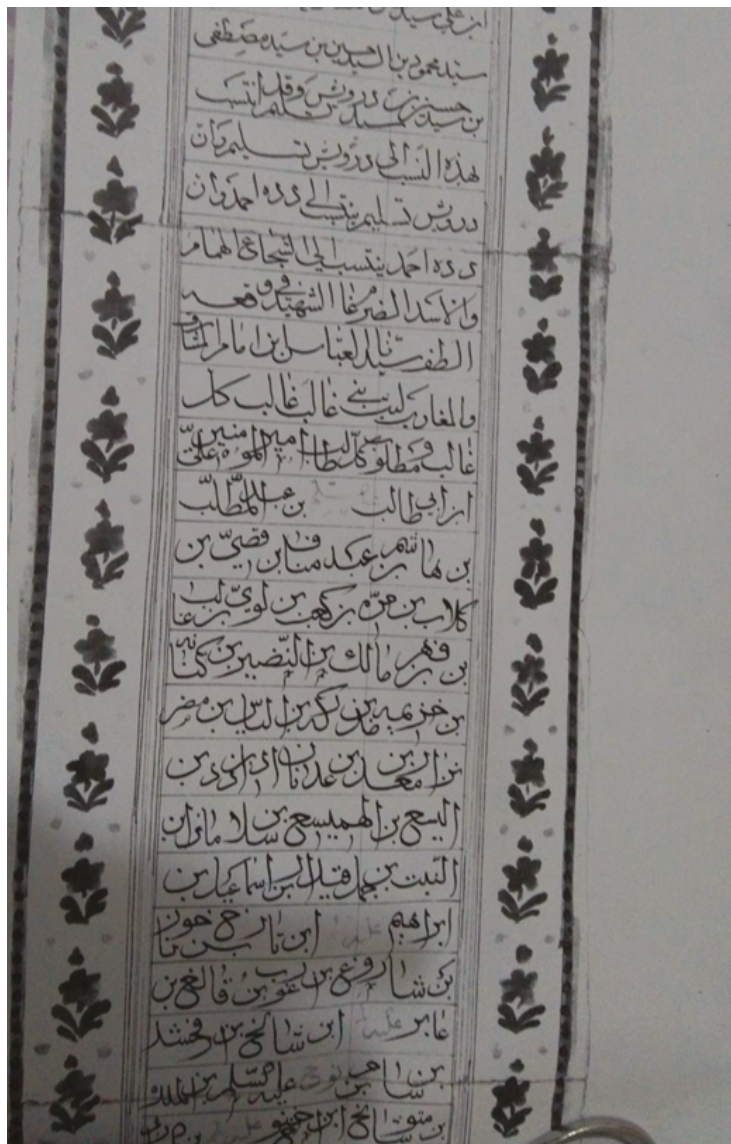 سيد محمود بن السيد حسين بن سيد مصطفى
بن سيد حسن بن درويش وقد انتسب
بهذه النسب الى درويش تسليم وان
درويش تسليم ينتسب الى دده احمد وان
دده احمد ينتسب الى الشجاع الهمام
والاسد الضرغام الشهيد في وقعه
الطف سيدنا العباس ابن امام المشارق
والمغارب ليث بني غالب غالب كل
غالب ومطلوب كل طالب امير المومنين علي
ابن ابي طالب بن عبد المطلب
بن هاشم بن عبد مناف بن قصي بن
كلاب بن مره بن كعب بن لوي بن غالب
بن فهر بن مالك بن النضير بن كنانه
بن خزيمه بن مدركه بن الياس بن مضر
بن نزار بن معد بن عدنان بن اد بن ادد بن
اليسع بن الهميسع بن سلامان ابن
النبت بن حمل بن قيدار ابن اسماعيل بن
ابراهيم عليه ابن تارخ بن ناحور
بن شاروغ بن ارغو بن فالغ بن
عابر عليه ابن شالخ بن ارفخشد
بن سام بن نوح عليه بن
بن متوشلخ ابن